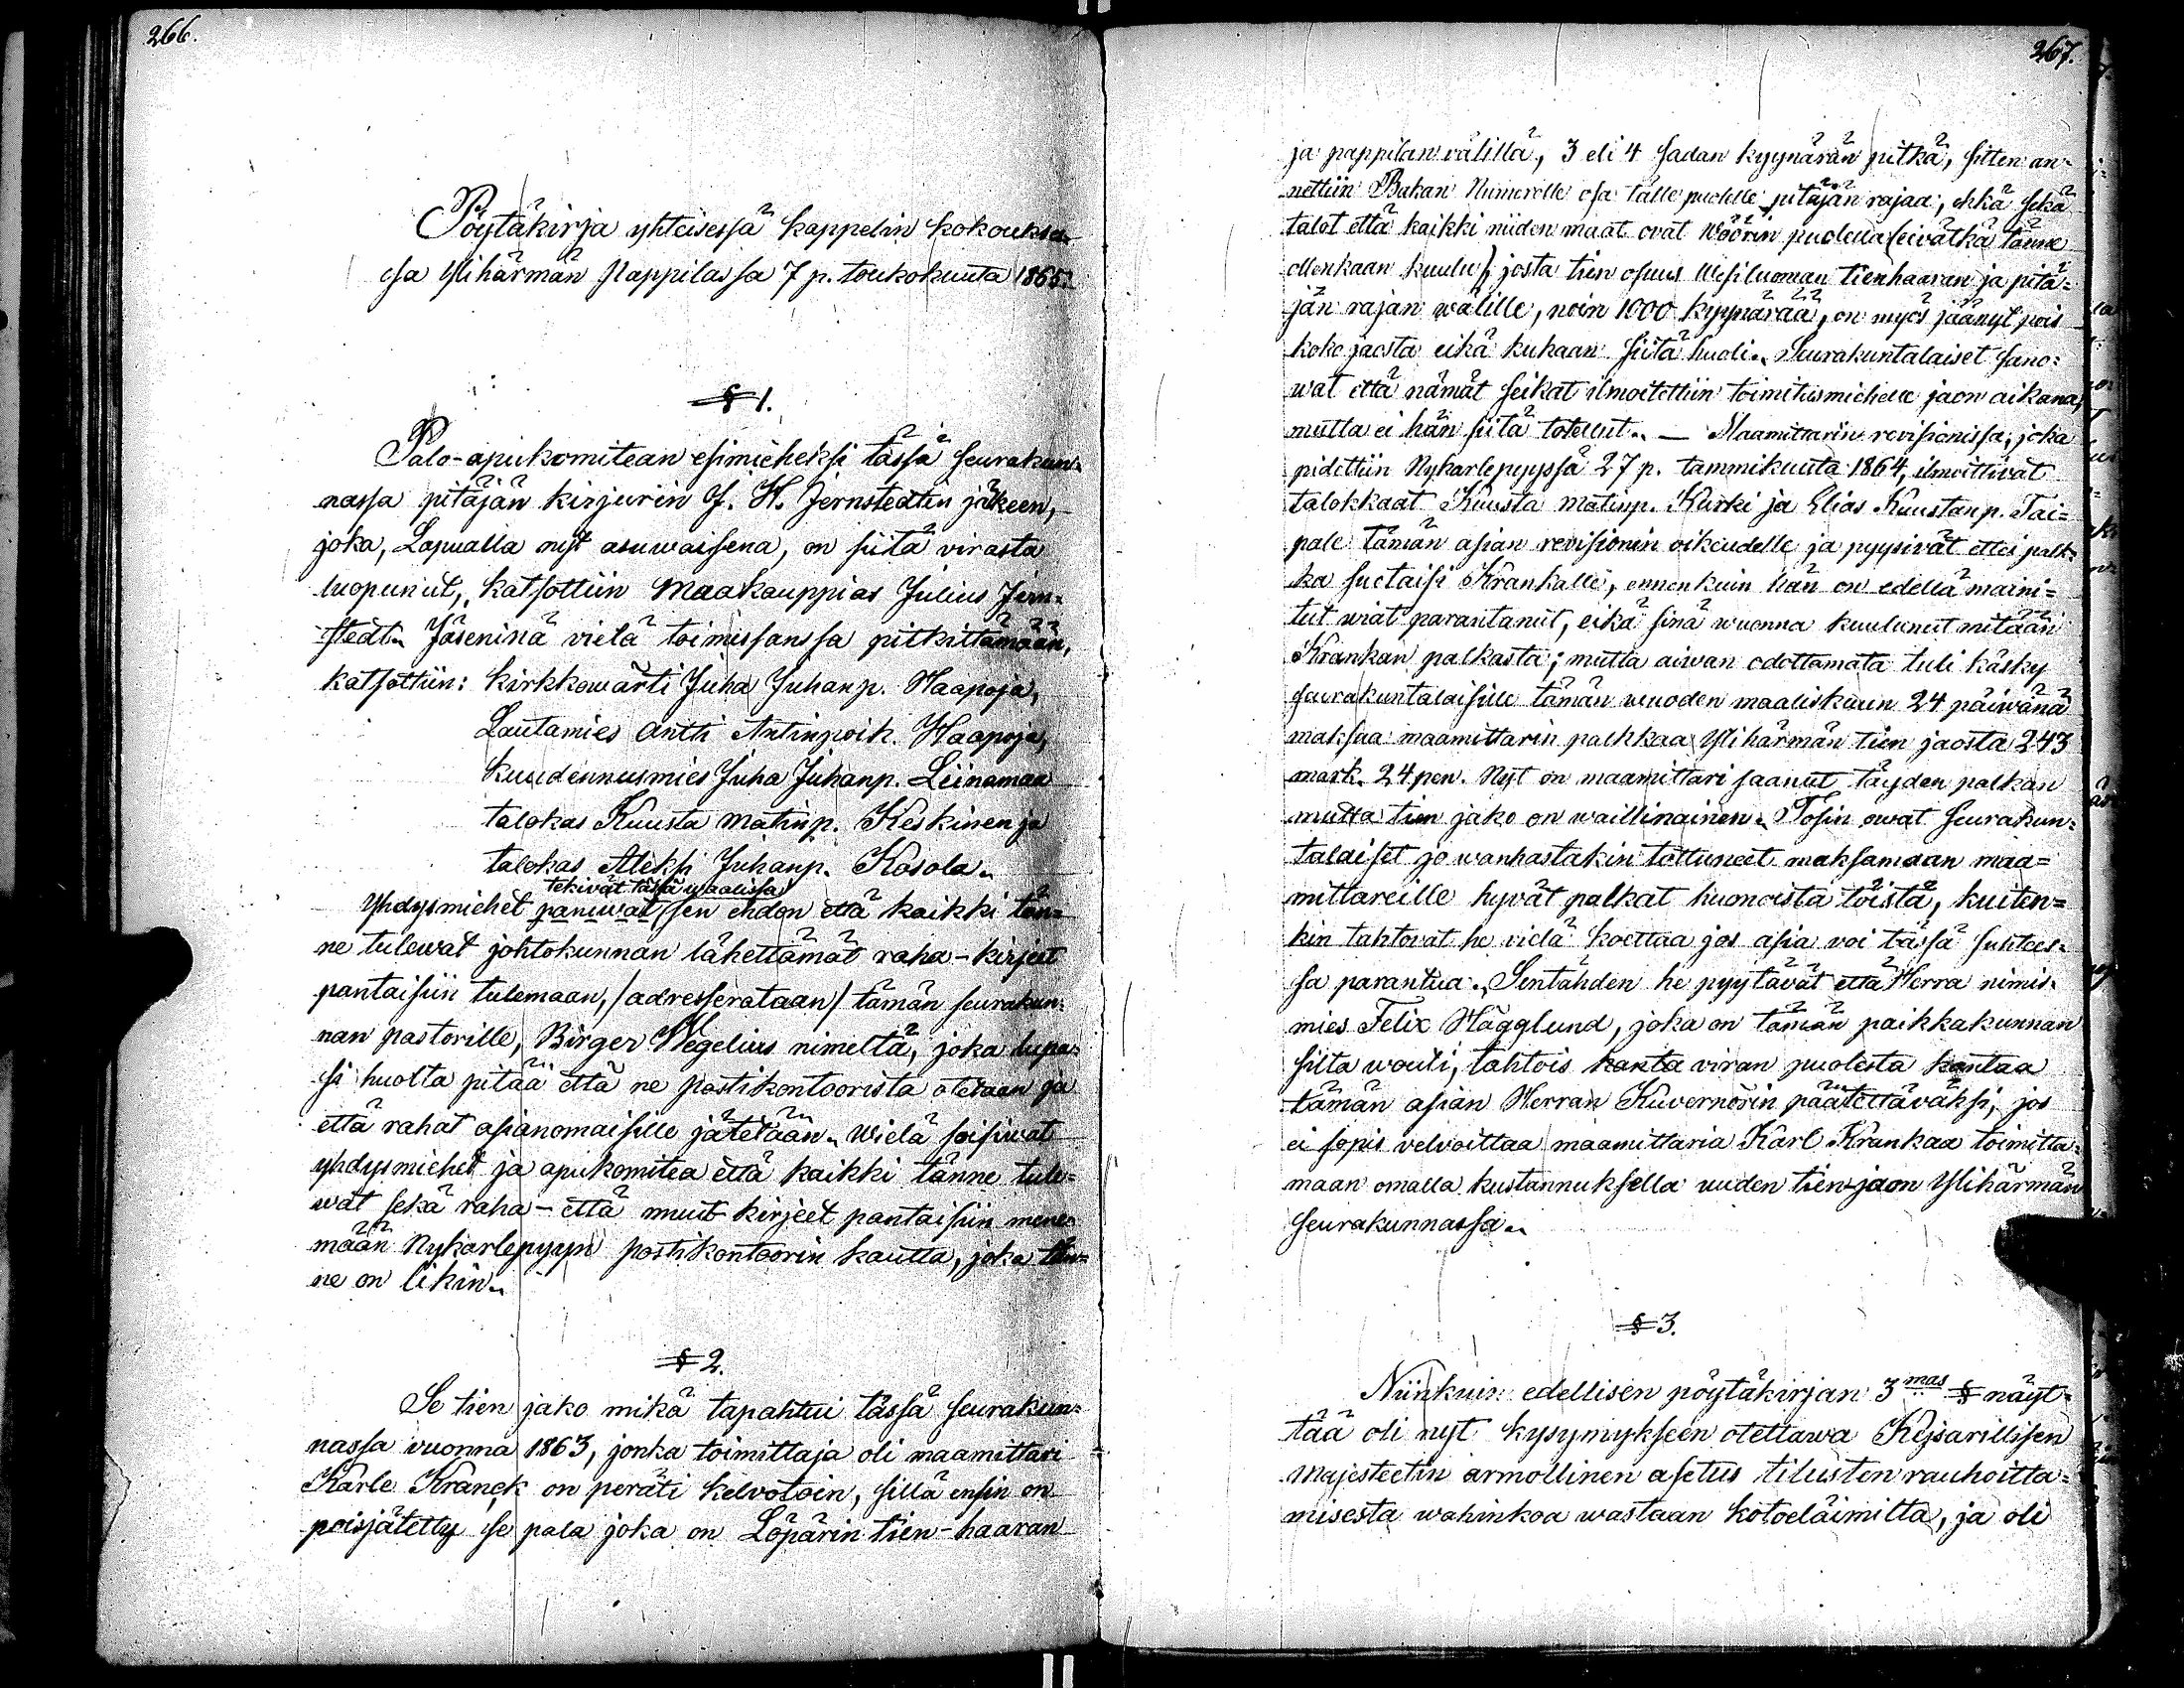 266.
Pöytäkirja yhteisessä kappelin kokoukse-
ssa Ylihärmän Pappilassa 7 p. toukokuuta 1865.
§ 1.
Palo-apukomitean esimieheksi tässä seurakun-
nassa pitäjän kirjurin J. H. Jernstedtin jälkeen,
joka, Lapualla nyt asuwaisena, on siitä virasta
luopunut, katsottiin Maakauppias Julius Jern-
stedt. Jäseninä vielä toimissanssa pitkittämään,
katsottiin: kirkkowärti Juha Juhanp. Haapoja,
Lautamies Antti Antinpoik. Haapoja,
kuudennusmies Juha Juhanp. Liinamaa
talokas Kuusta Matinp. Keskinen ja
talokas Aleksi Juhanp. Kosola.
tekivät tässä waalissa
Yhdysmiehet paniwat sen ehdon että kaikki tän-
ne tulewat johtokunnan lähettämät raha-kirjeet
pantaisiin tulemaan, /adresserataan/ tämän seurakun-
nan pastorille, Birger Wegelius nimeltä, joka lupa-
si huolta pitää että ne postikontoorista otetaan ja
että rahat asianomaisille jätetään. Wielä soisiwat
yhdysmiehet ja apukomitea että kaikki tänne tule-
wat sekä raha- että muut kirjeet pantaisiin mene-
mään Nykarlepyyn postikontoorin kautta, joka tän-
ne on likin.
§ 2.
Se tien jako mikä tapahtui tässä seurakun-
nassa vuonna 1863, jonka toimittaja oli maamittari
Karle Kranck on peräti kelvotoin, sillä ensin on
poisjätetty se pala joka on Löpärin tien-haaran
267.
ja pappilan välillä, 3 eli 4 sadan kyynärän pitkä, sitten an-
nettiin Bakan Numerolle osa tälle puolelle pitäjän rajaa, ehkä sekä
talot että kaikki niiden maat ovat Wöörin puolella (eivätkä tänne
ollenkaan kuulu), josta tien osuus Wesiluoman tienhaaran ja pitä-
jän rajan wälille, noin 1000 kyynärää, on myös jäänyt pois
koko jaosta eikä kukaan siitä huoli. Seurakuntalaiset sano-
wat että nämät seikat ilmoitettiin toimitusmiehelle jaon aikana,
mutta ei hän siitä totellut. — Maamittarin revisionissa, joka
pidettiin Nykarlepyyssä 27 p. tammikuuta 1864, ilmoittivat
talokkaat Kuusta Matinp. Kurki ja Elias Kuustanp. Tai-
pale tämän asian revisionin oikeudelle ja pyysivät ettei palk-
ka suotaisi Krankalle, ennenkuin hän on edellä maini-
tut wiat parantanut, eikä sinä wuonna kuulunut mitään
Krankan palkasta; mutta aiwan odottamata tuli käsky
seurakuntalaisille tämän wuoden maaliskuun 24 päiwänä
maksaa maamittarin palkkaa Ylihärmän tien jaosta 243
mark. 24 pen. Nyt on maamittari saanut täyden palkan
mutta tien jako on waillinainen. Tosin owat seurakun-
talaiset jo wanhastakin tottuneet maksamaan maa-
mittareille hyvät palkat huonoista töistä, kuiten-
kin tahtovat he vielä koettaa jos asia voi tässä suhtees-
sa parantua. Sentähden he pyytävät että Herra nimis-
mies Felix Hägglund, joka on tämän paikkakunnan
silta wouti, tahtois kanta viran puolesta kantaa
tämän asian Herran Kuvernörin päätettäväksi, jos
ei sopis velvoittaa maamittaria Karl Krankaa toimitta-
maan omalla kustannuksella uuden tien-jaon Ylihärmän
seurakunnassa.
§ 3.
Niinkuin edellisen pöytäkirjan 3mas § näyt-
tää oli nyt kysymykseen otettawa Kejsarillisen
Majesteetin armollinen asetus tilusten rauhoitta-
misesta wahinkoa wastaan kotoeläimiltä, ja oli